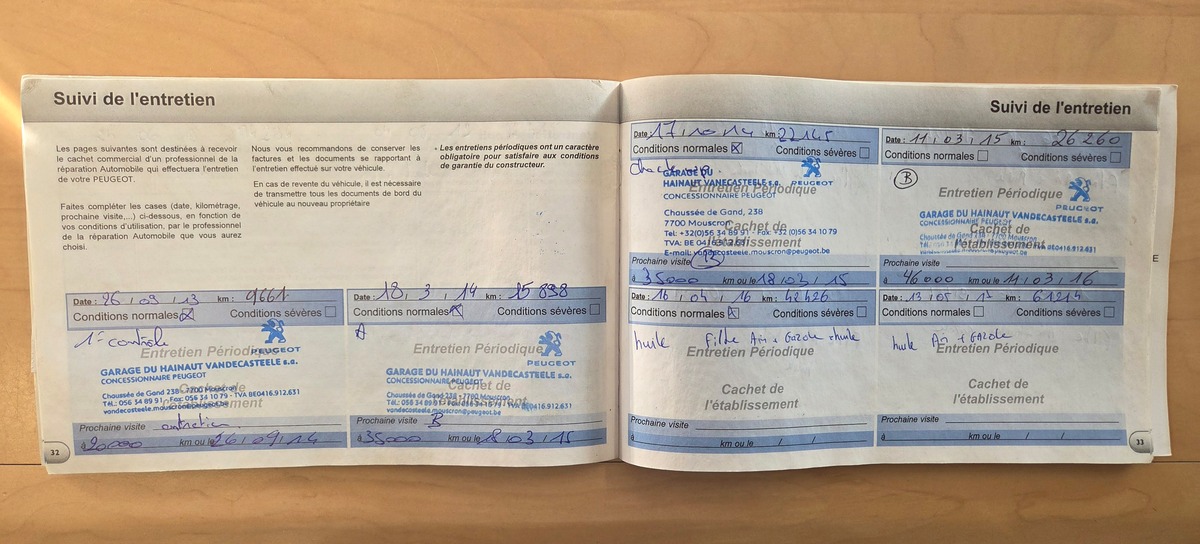 Suivi de l'entretien
Les pages suivantes sont destinées à recevoir
le cachet commercial d'un professionnel de la
réparation Automobile qui effectuera l'entretien
de votre PEUGEOT.
Faites compléter les cases (date, kilométrage,
prochaine visite,...) ci-dessous, en fonction de
vos conditions d'utilisation, par le professionnel
de la réparation Automobile que vous aurez
choisi.
Nous vous recommandons de conserver les
factures et les documents se rapportant à
l'entretien effectué sur votre véhicule.
En cas de revente du véhicule, il est nécessaire
de transmettre tous les documents de bord du
véhicule au nouveau propriétaire
* Les entretiens périodiques ont un caractère
obligatoire pour satisfaire aux conditions
de garantie du constructeur.
Date : 26 / 09 / 13 km : 9661
Conditions normales Conditions sévères
1er controle
Entretien Périodique
PEUGEOT
GARAGE DU HAINAUT VANDECASTEELE s.a.
CONCESSIONNAIRE PEUGEOT
Cachet de
l'établissement
Chaussée de Gand 238 - 7700 Mouscron
Tél.: 056 34 89 91 - Fax: 056 34 10 79 - TVA BE0416.912.631
vandecasteele.mouscron@peugeot.be
Prochaine visite entretien
à 20000 km ou le 26 / 09 / 14
32
Date : 18 / 3 / 14 km : 15898
Conditions normales Conditions sévères
A
Entretien Périodique
PEUGEOT
GARAGE DU HAINAUT VANDECASTEELE s.a.
CONCESSIONNAIRE PEUGEOT
Cachet de
l'établissement
Chaussée de Gand 238 - 7700 Mouscron
Tél.: 056 34 89 91 - TVA BE0416.912.631
vandecasteele.mouscron@peugeot.be
Prochaine visite B
à 35000 km ou le 18 / 03 / 15
Suivi de l'entretien
Date : 17 / 10 / 14 km : 22145
Conditions normales Conditions sévères
Entretien Périodique
PEUGEOT
GARAGE DU
HAINAUT VANDECASTEELE s.a.
CONCESSIONNAIRE PEUGEOT
Chaussée de Gand, 238
7700 Mouscron
Cachet de
l'établissement
Tel: +32(0)56 34 89 91 - Fax: +32 (0)56 34 10 79
E-mail: vandecasteele.mouscron@peugeot.be
Prochaine visite B
à 35000 km ou le 18 / 03 / 15
Date : 11 / 03 / 15 km : 26260
Conditions normales Conditions sévères
B
Entretien Périodique
PEUGEOT
GARAGE DU HAINAUT VANDECASTEELE s.a.
CONCESSIONNAIRE PEUGEOT
Cachet de
l'établissement
Chaussée de Gand 238 - 7700 Mouscron
TVA BE0416.912.631
Prochaine visite
à 46000 km ou le 11 / 03 / 16
E
Date : 16 / 04 / 16 km : 42426
Conditions normales Conditions sévères
huile Filtre Air + Gazole + huile
Entretien Périodique
Cachet de
l'établissement
Prochaine visite
à km ou le / /
Date : 13 / 05 / 17 km : 61214
Conditions normales Conditions sévères
huile Air + Gazole
Entretien Périodique
Cachet de
l'établissement
Prochaine visite
à km ou le / /
33